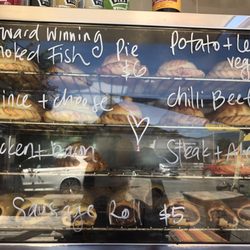 ward Winning
moked Fish Pie Potato + Le
$6 veg
ince + cheese chilli Beef
cken + Bacon Steak + Al
Sausage Roll $5